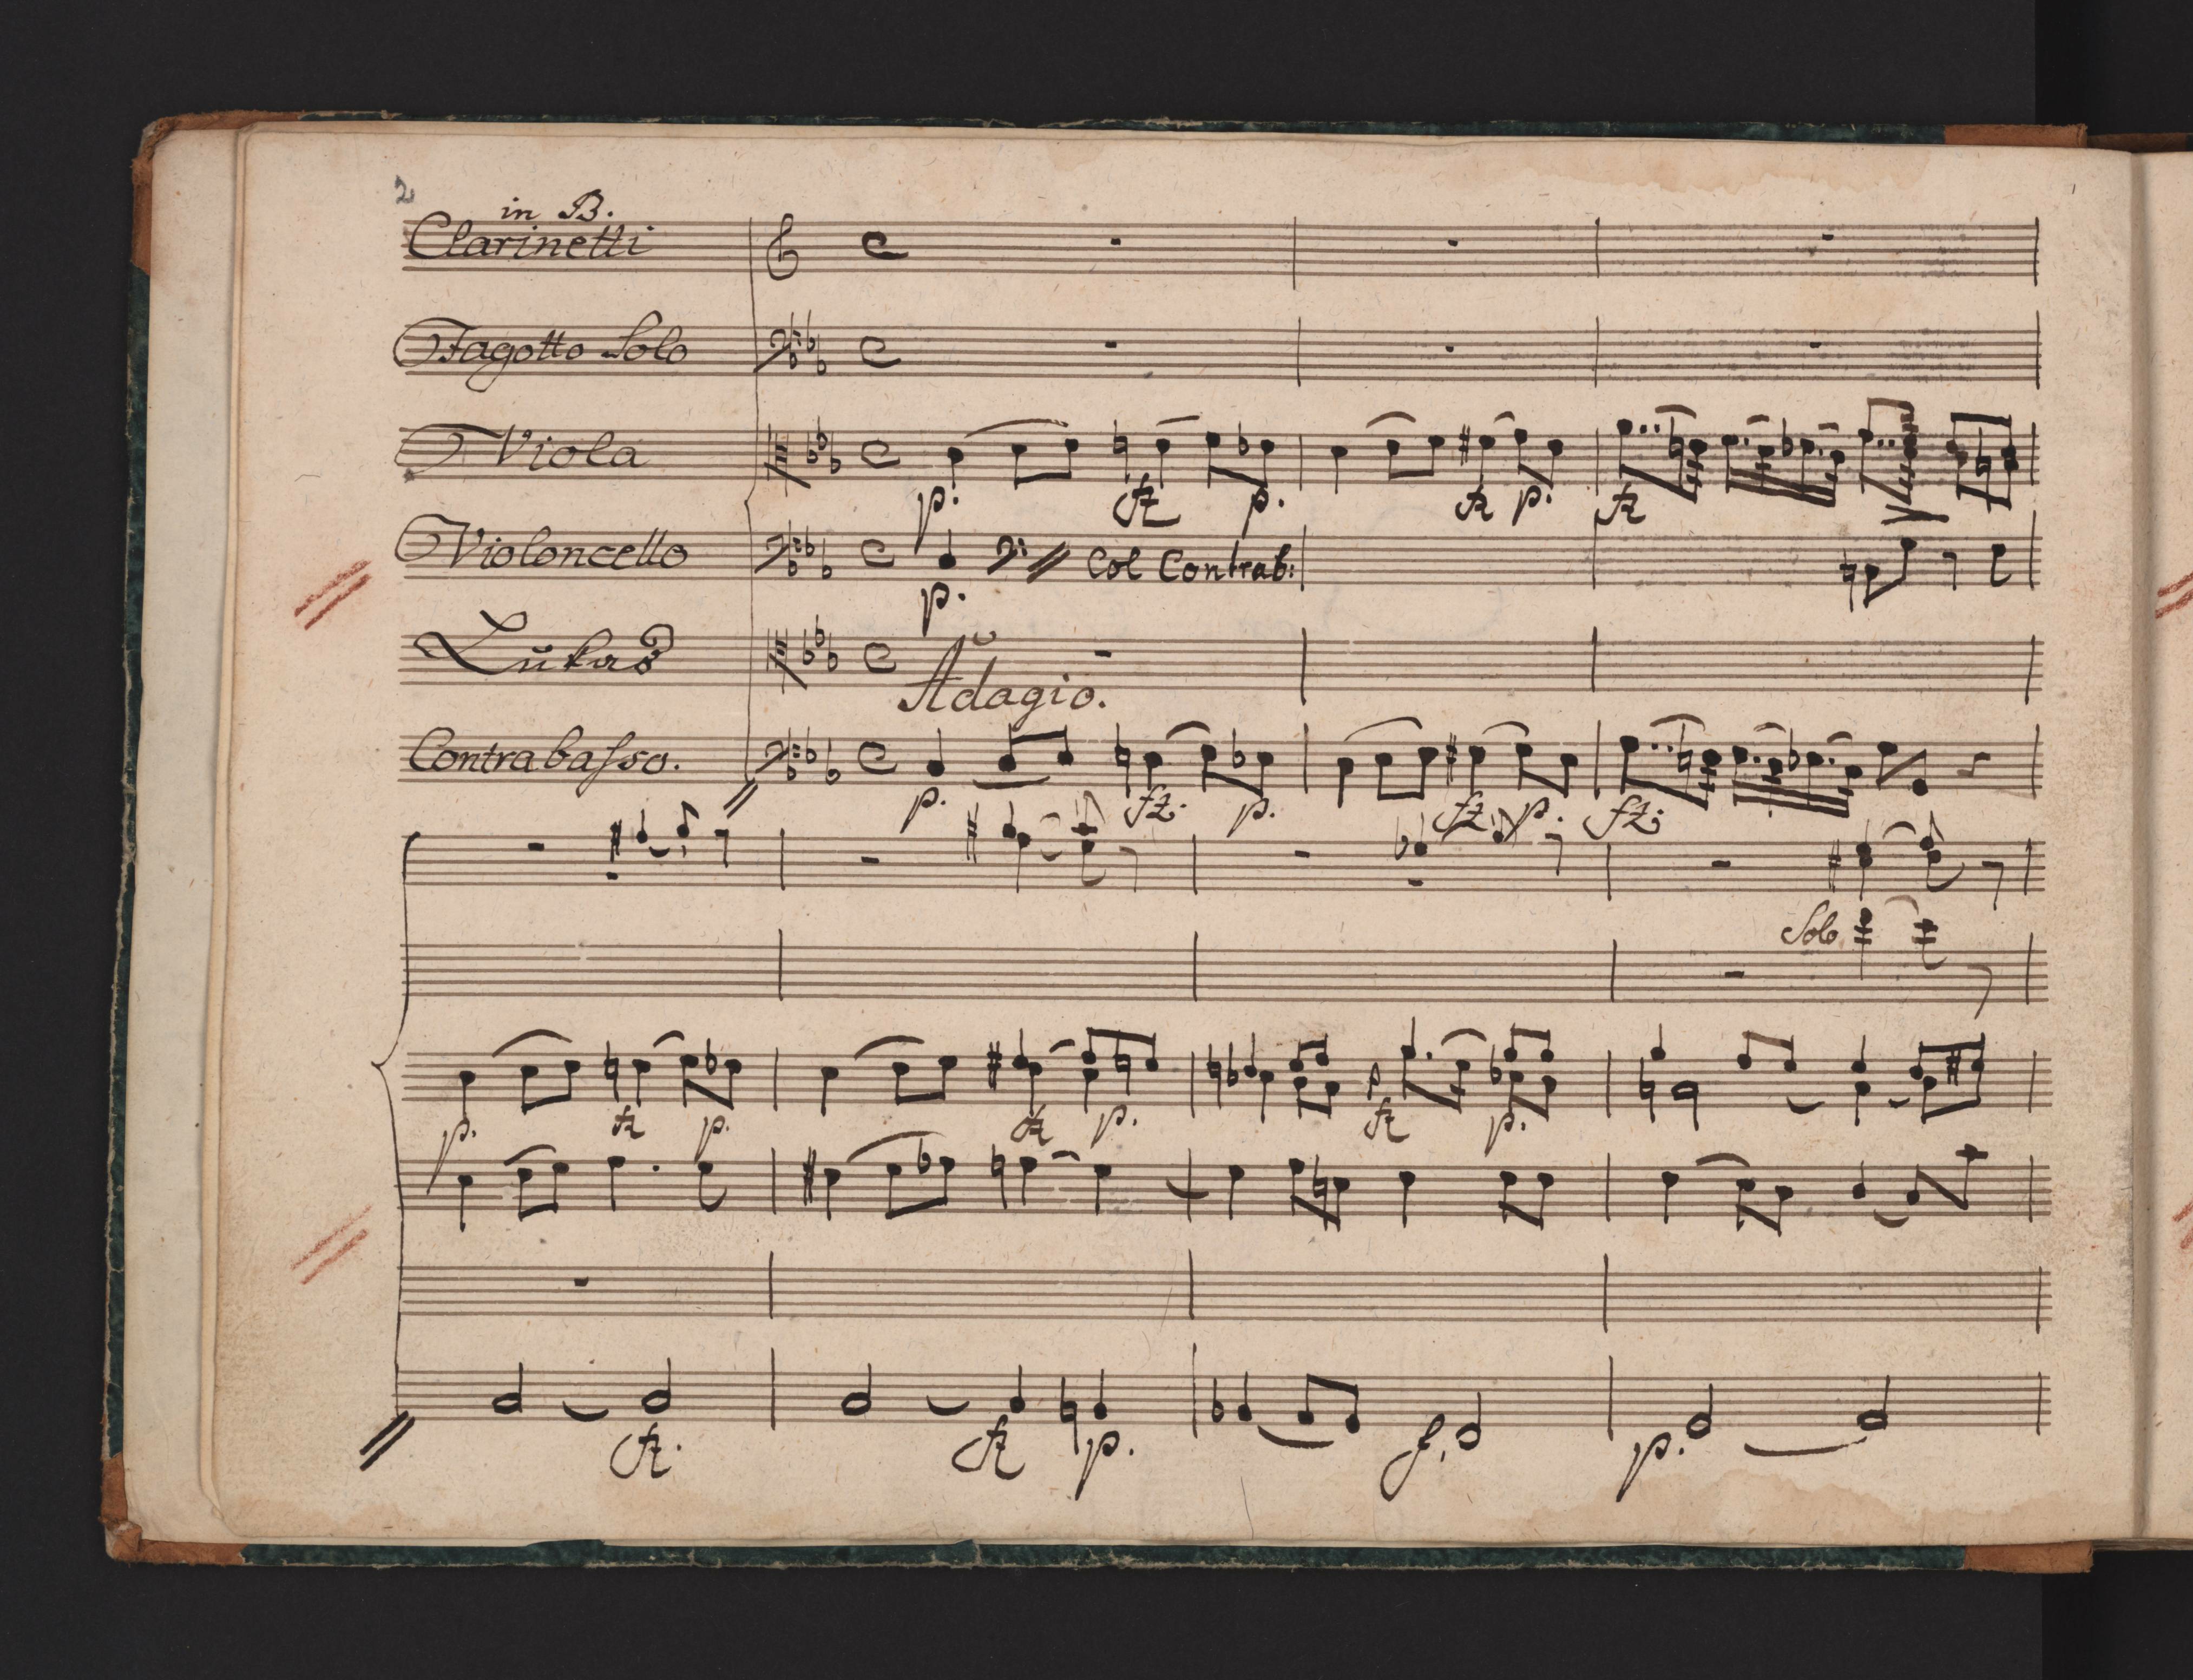 2
in B.
Clarinetti
Fagotto Solo
Viola
p. fz p. fz p. fz
Violoncello
Col Contrab:
p.
Lukas
Adagio.
Contrabasso.
p. fz. p. fz. p. fz:
Solo
p. fz p. fz p. fz p.
fz. fz p. f. p.